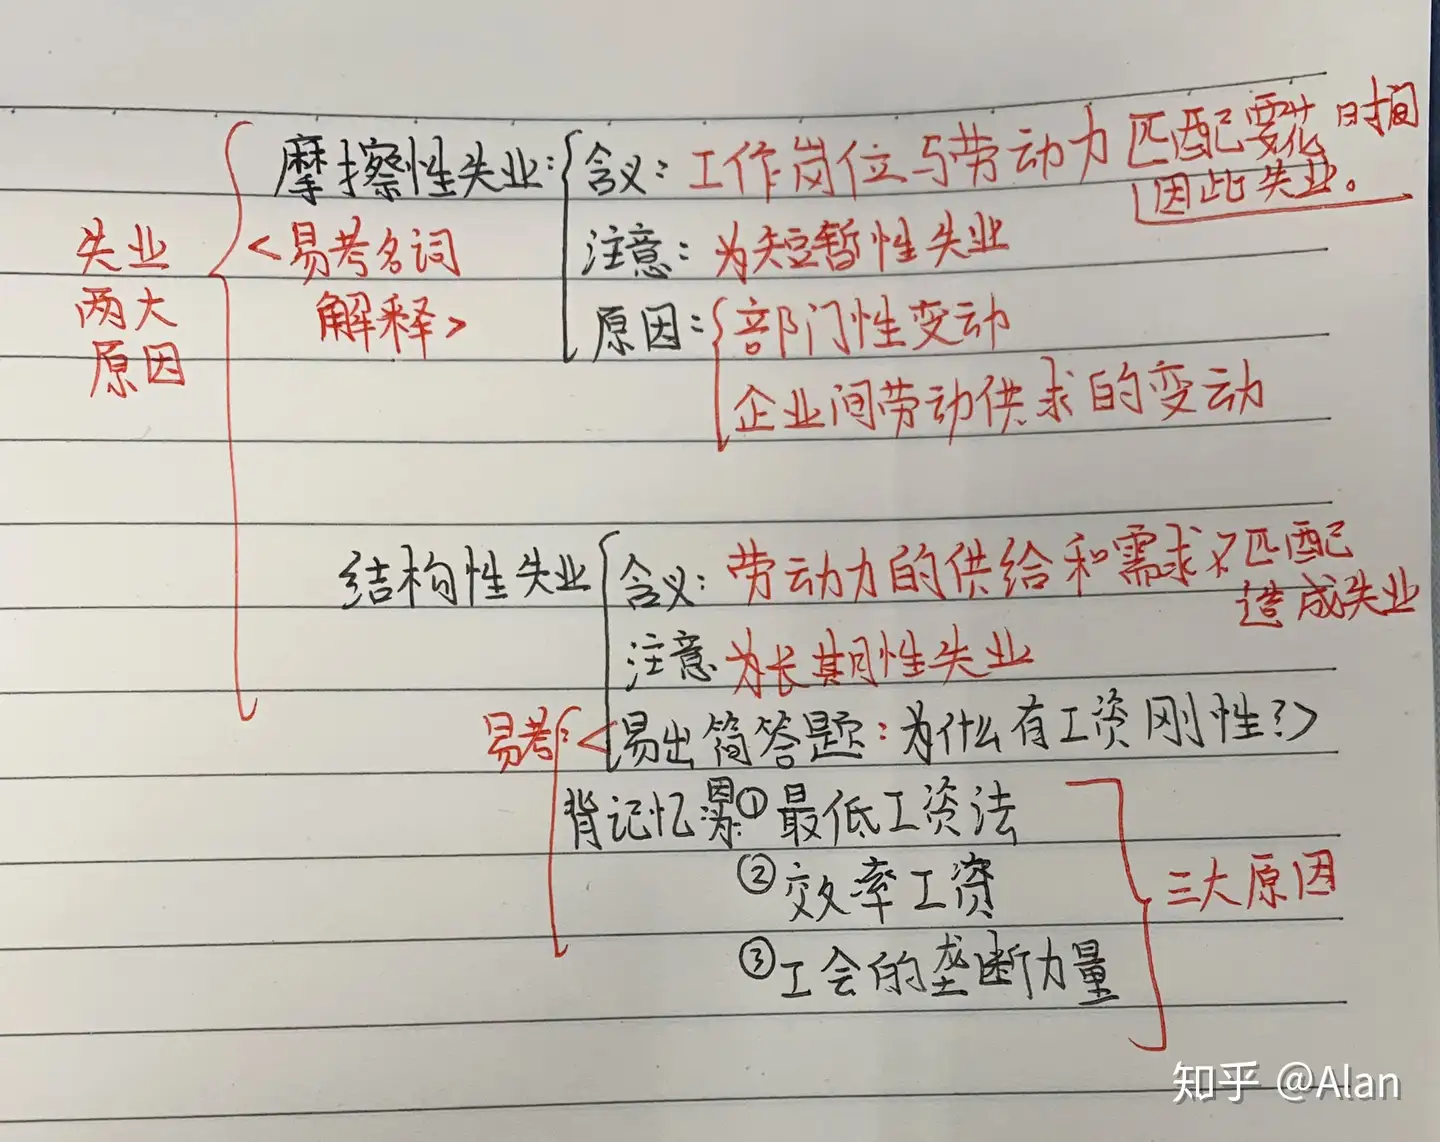 失业
两大
原因
摩擦性失业:
<易考名词
解释>
含义: 工作岗位与劳动力匹配要花时间
因此失业。
注意: 为短暂性失业
原因: 部门性变动
企业间劳动供求的变动
结构性失业
含义: 劳动力的供给和需求不匹配
造成失业
注意 为长期性失业
易考: <易出简答题: 为什么有工资刚性?>
背记忆 因为: ① 最低工资法
② 效率工资
③ 工会的垄断力量
三大原因
知乎 @Alan